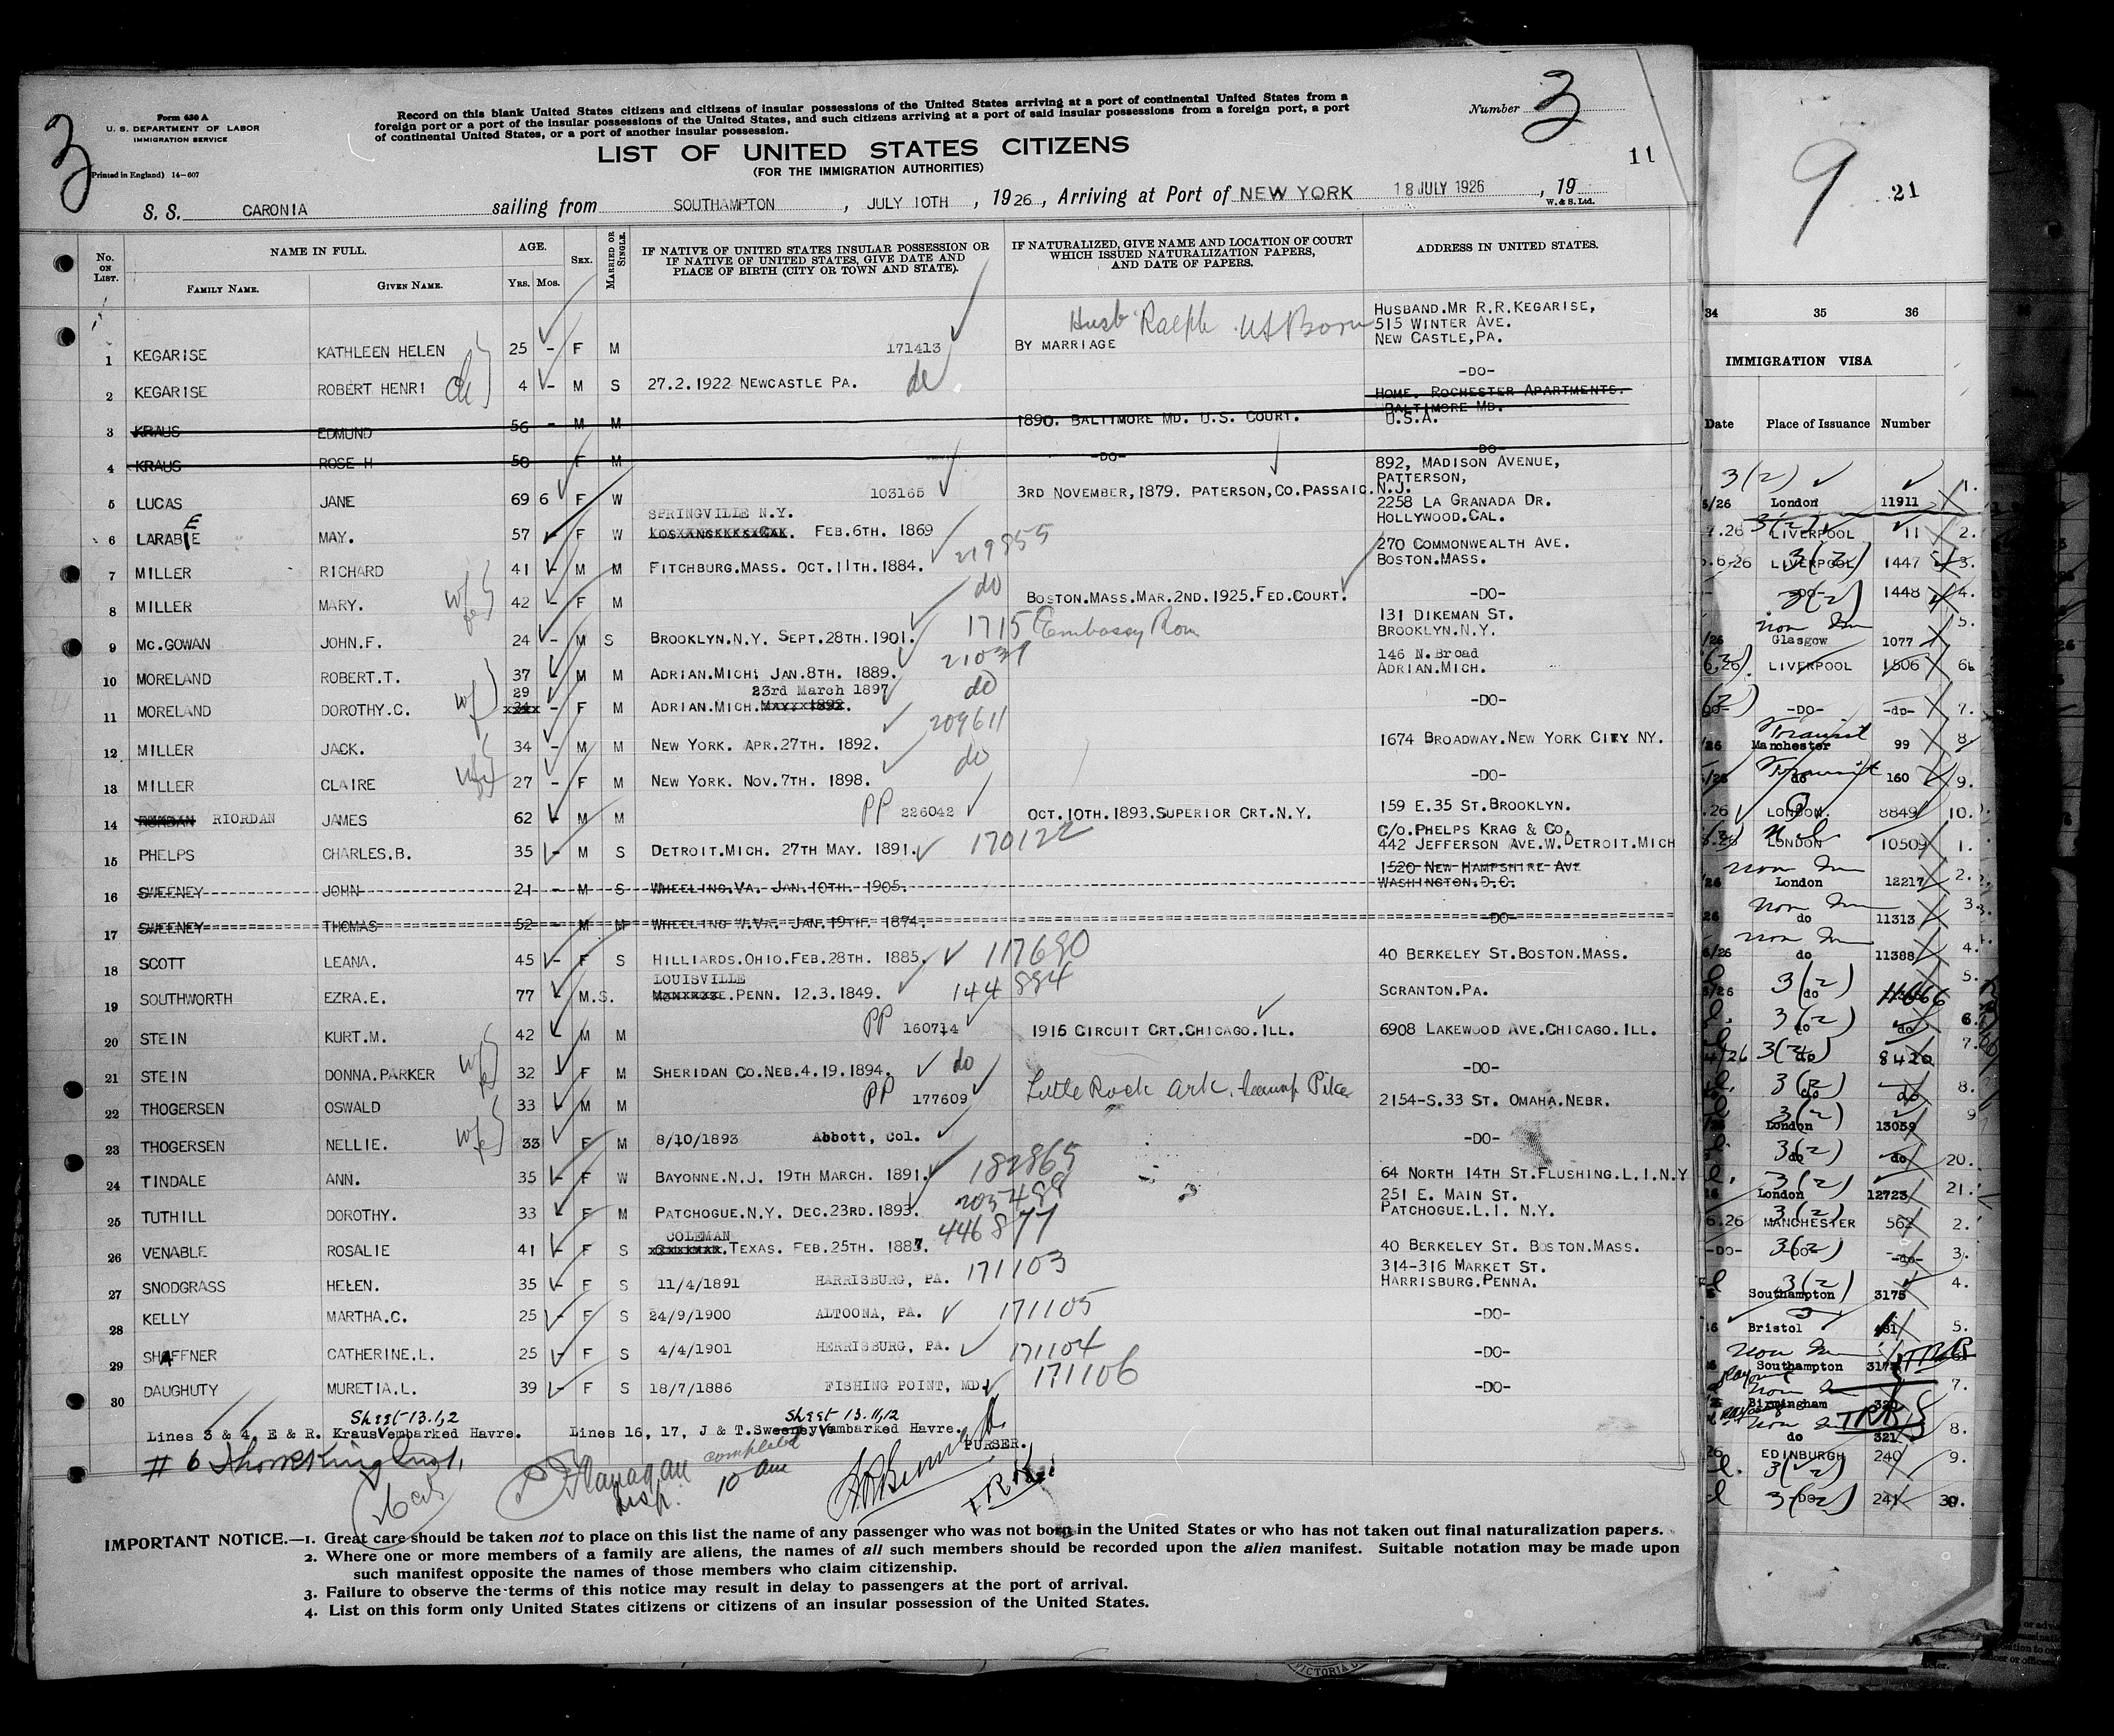 3
Form 630 A
U. S. DEPARTMENT OF LABOR
IMMIGRATION SERVICE
(Printed in England) 14-607
Record on this blank United States citizens and citizens of insular possessions of the United States arriving at a port of continental United States from a
foreign port or a port of the insular possessions of the United States, and such citizens arriving at a port of said insular possessions from a foreign port, a port
of continental United States, or a port of another insular possession.
Number 3
LIST OF UNITED STATES CITIZENS
(FOR THE IMMIGRATION AUTHORITIES)
11
S. S. CARONIA sailing from SOUTHAMPTON, JULY 10TH, 1926, Arriving at Port of NEW YORK 18 JULY 1926, 19
W. & S. Ltd.
No. ON LIST. NAME IN FULL. FAMILY NAME. GIVEN NAME. AGE. YRS. MOS. SEX. MARRIED OR SINGLE. IF NATIVE OF UNITED STATES INSULAR POSSESSION OR IF NATIVE OF UNITED STATES, GIVE DATE AND PLACE OF BIRTH (CITY OR TOWN AND STATE). IF NATURALIZED, GIVE NAME AND LOCATION OF COURT WHICH ISSUED NATURALIZATION PAPERS, AND DATE OF PAPERS. ADDRESS IN UNITED STATES.
1 KEGARISE KATHLEEN HELEN 25 - F M 171413 BY MARRIAGE Husb Ralph US Born HUSBAND.MR R.R.KEGARISE, 515 WINTER AVE. NEW CASTLE,PA.
2 KEGARISE ROBERT HENRI ch 4 - M S 27.2.1922 NEWCASTLE PA. do -DO-
3 KRAUS EDMUND 56 - M M 1890. BALTIMORE MD. U.S. COURT. HOME. ROCHESTER APARTMENTS. BALTIMORE MD. U.S.A.
4 KRAUS ROSE H 50 F M -DO- -DO-
5 LUCAS JANE 69 6 F W 103165 3RD NOVEMBER,1879. PATERSON,CO.PASSAIC.N.J. 892, MADISON AVENUE, PATTERSON,
6 LARABEE MAY. 57 F W SPRINGVILLE N.Y. FEB.6TH. 1869 2258 LA GRANADA DR. HOLLYWOOD.CAL.
7 MILLER RICHARD 41 - M M FITCHBURG.MASS. OCT.11TH.1884. 219855 270 COMMONWEALTH AVE. BOSTON.MASS.
8 MILLER MARY. wfe 42 - F M do BOSTON.MASS.MAR.2ND. 1925.FED.COURT. -DO-
9 MC.GOWAN JOHN.F. 24 - M S BROOKLYN.N.Y. SEPT.28TH.1901. 1715 Embassy Rom 131 DIKEMAN ST. BROOKLYN.N.Y.
10 MORELAND ROBERT.T. 37 M M ADRIAN.MICH. JAN.8TH. 1889. 146 N.Broad ADRIAN.MICH.
11 MORELAND DOROTHY.C. wf 29 - F M ADRIAN.MICH. 23rd March 1897 do -DO-
12 MILLER JACK. 34 - M M NEW YORK. APR.27TH. 1892. 209611 1674 BROADWAY.NEW YORK CITY NY.
13 MILLER CLAIRE 27 - F M NEW YORK. NOV.7TH. 1898. do -DO-
14 RIORDAN JAMES 62 M M PP 226042 OCT.10TH.1893.SUPERIOR CRT.N.Y. 159 E.35 ST.BROOKLYN.
15 PHELPS CHARLES.B. 35 - M S DETROIT.MICH. 27TH MAY. 1891. 170122 C/O.PHELPS KRAG & CO. 442 JEFFERSON AVE.W.DETROIT.MICH
16 SWEENEY JOHN 21 - M S WHEELING.VA. JAN.10TH. 1905. 1520 NEW HAMPSHIRE AVE WASHINGTON.D.C.
17 SWEENEY THOMAS 52 - M M WHEELING W.VA. JAN.19TH. 1874. -DO-
18 SCOTT LEANA. 45 - F S HILLIARDS.OHIO.FEB.28TH. 1885. 117690 40 BERKELEY ST.BOSTON.MASS.
19 SOUTHWORTH EZRA.E. 77 - M.S. LOUISVILLE .PENN. 12.3.1849. 144884 SCRANTON.PA.
20 STEIN KURT.M. 42 M M PP 160714 1915 CIRCUIT CRT.CHICAGO.ILL. 6908 LAKEWOOD AVE.CHICAGO.ILL.
21 STEIN DONNA.PARKER wfe 32 - F M SHERIDAN CO.NEB.4.19.1894. do -DO-
22 THOGERSEN OSWALD 33 M M PP 177609 Little Rock Ark. 2154-S.33 ST. OMAHA.NEBR.
23 THOGERSEN NELLIE. wfe 33 F M 8/10/1893 Abbott, Col. -DO-
24 TINDALE ANN. 35 - F W BAYONNE.N.J. 19TH MARCH. 1891. 182865 64 NORTH 14TH ST.FLUSHING.L.I.N.Y
25 TUTHILL DOROTHY. 33 - F M PATCHOGUE.N.Y. DEC.23RD.1893. 251 E. MAIN ST. PATCHOGUE.L.I. N.Y.
26 VENABLE ROSALIE 41 - F S COLEMAN .TEXAS. FEB.25TH. 1887. 446877 40 BERKELEY ST. BOSTON.MASS.
27 SNODGRASS HELEN. 35 - F S 11/4/1891 HARRISBURG, PA. 171103 314-316 MARKET ST. HARRISBURG.PENNA.
28 KELLY MARTHA.C. 25 - F S 24/9/1900 ALTOONA, PA. 171105 -DO-
29 SHAFFNER CATHERINE.L. 25 - F S 4/4/1901 HERRISBURG, PA. 171104 -DO-
30 DAUGHUTY MURETIA.L. 39 - F S 18/7/1886 FISHING POINT, MD. 171106 -DO-
Sheet 13.1,2 Sheet 13.11,12
Lines 3 & 4, E & R. Kraus embarked Havre. Lines 16, 17, J & T.Sweeney embarked Havre.
PURSER.
completed
10 am
IMPORTANT NOTICE.—1. Great care should be taken not to place on this list the name of any passenger who was not born in the United States or who has not taken out final naturalization papers.
2. Where one or more members of a family are aliens, the names of all such members should be recorded upon the alien manifest. Suitable notation may be made upon
such manifest opposite the names of those members who claim citizenship.
3. Failure to observe the terms of this notice may result in delay to passengers at the port of arrival.
4. List on this form only United States citizens or citizens of an insular possession of the United States.
9
21
34 35 36
IMMIGRATION VISA
Date Place of Issuance Number
London 11911 1.
LIVERPOOL 11 2.
LIVERPOOL 1447 3.
1448 4.
5.
Glasgow 1077
LIVERPOOL 1506 6
-DO- -do- 7.
Transit
Manchester 99 8
Transit
do 160 9.
LONDON. 8849 10.
LONDON 10509 1.
London 12217 2.
do 11313 3.
do 11388 4.
do 5.
do do 6.
do 8420 7.
do do 8.
London 13059 9
do do 20.
London 12723 21.
MANCHESTER 562 2.
-DO- -do- 3.
Southampton 3175 4.
Bristol 5.
Southampton
Birmingham 320 7.
do 321 8.
EDINBURGH 240 9.
-DO- 241 30.